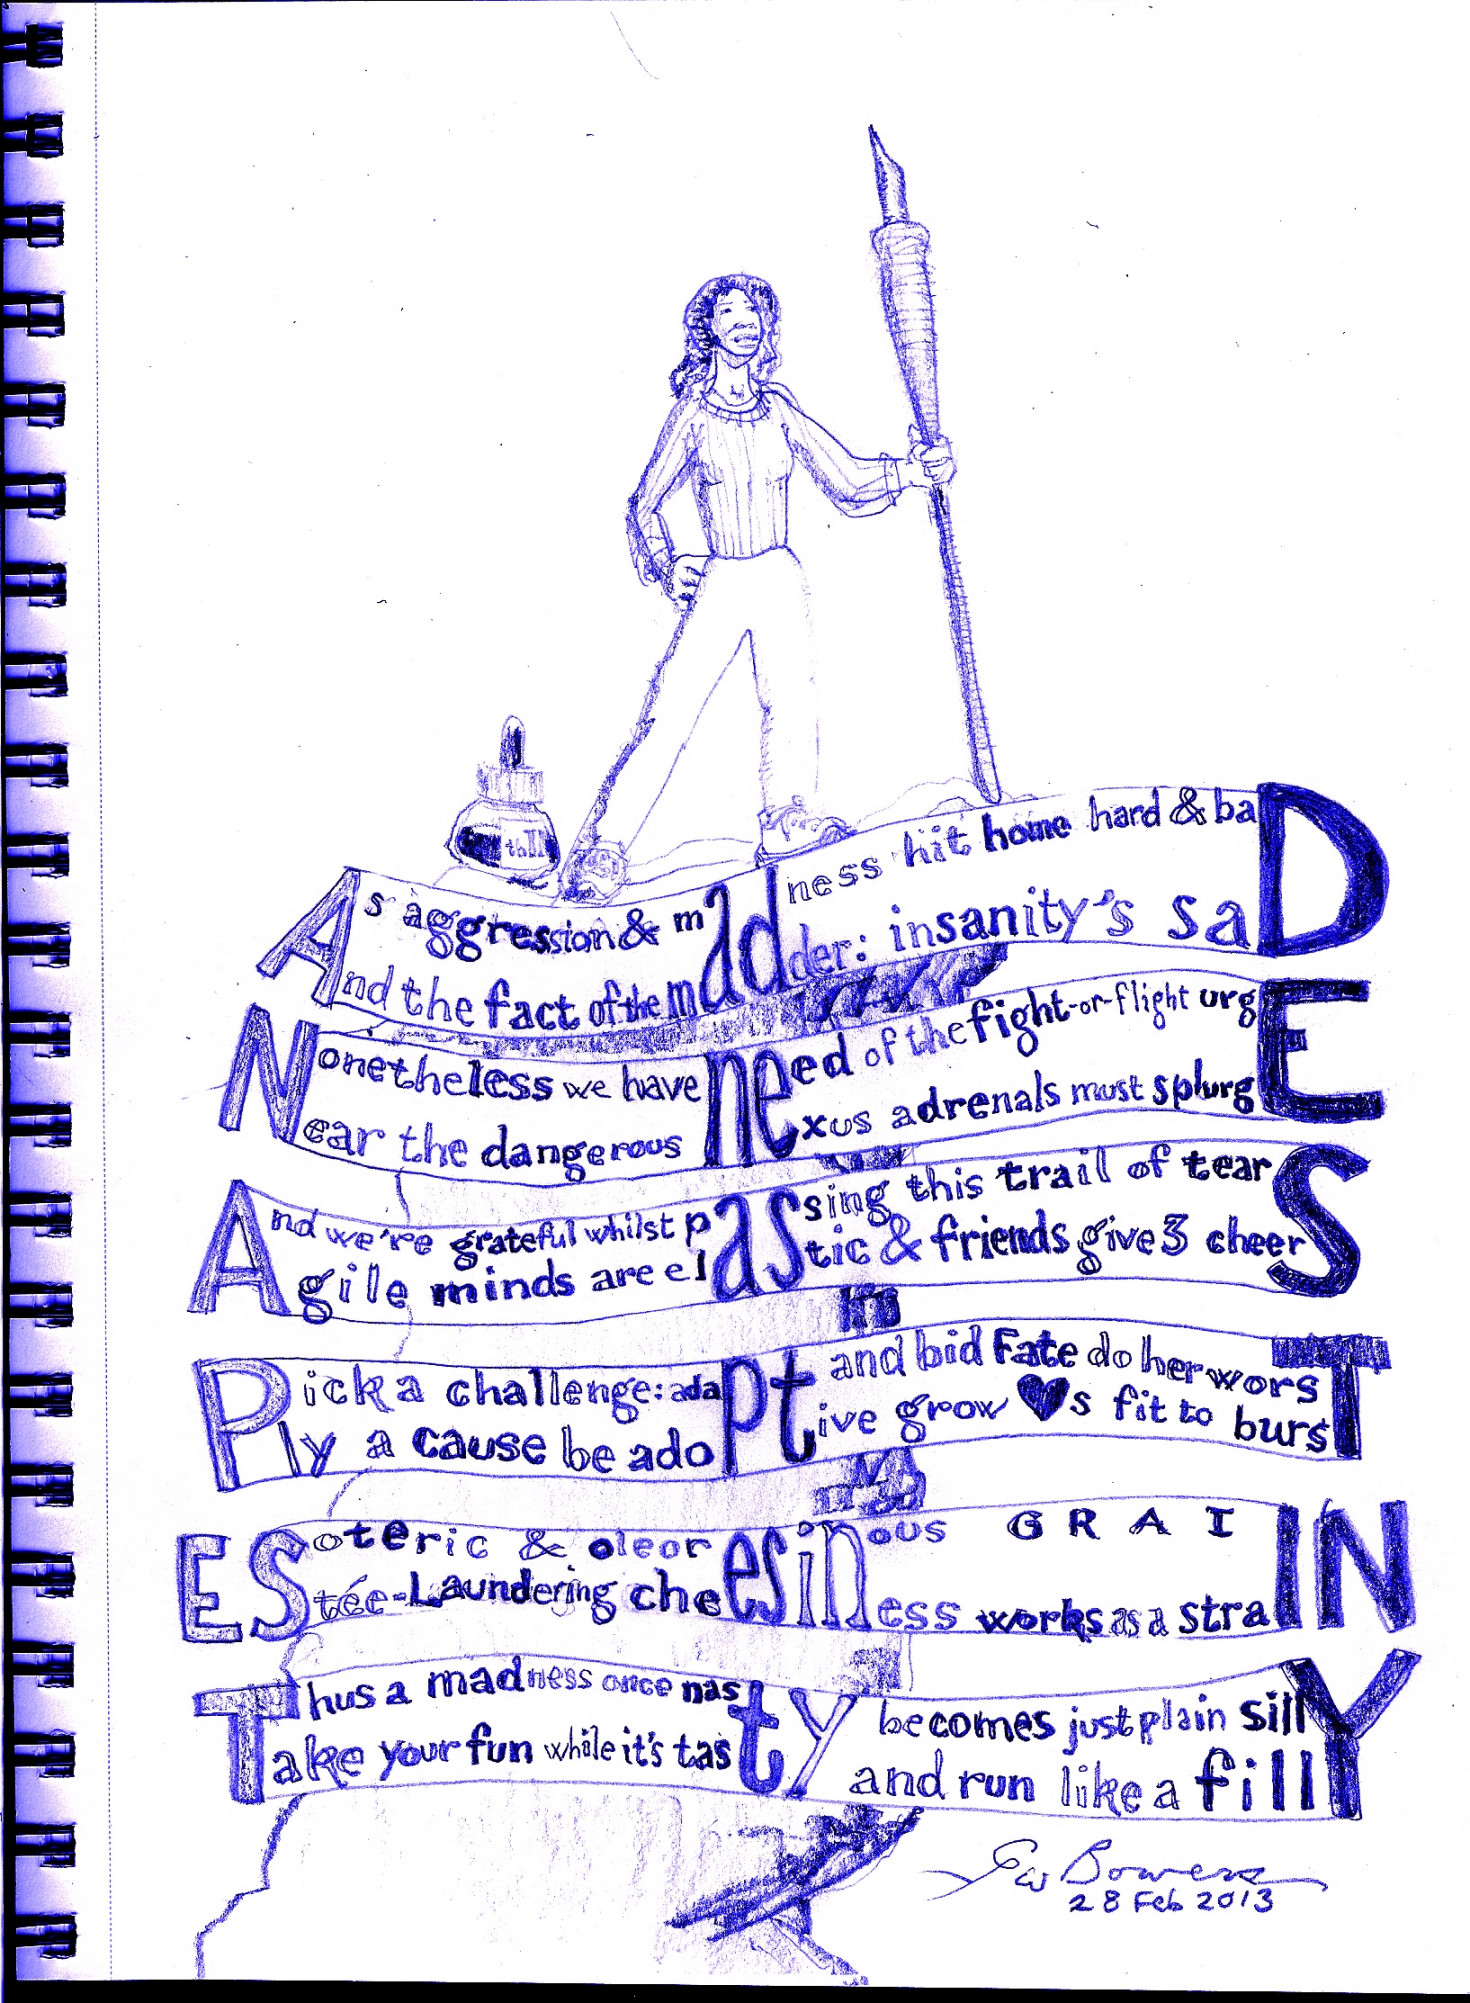 As aggression & madness hit home hard & baD
And the fact of the madder: insanity's saD
Nonetheless we have need of the fight-or-flight urgE
Near the dangerous nexus adrenals must splurgE
And we're grateful whilst passing this trail of tearS
Agile minds are elastic & friends give 3 cheerS
Pick a challenge: adapt and bid Fate do her worsT
Ply a cause be adoptive grow ♥s fit to bursT
ESoteric & oleoresinous GRAIN
EStée-Laundering cheesiness works as a straIN
Thus a madness once nasty becomes just plain sillY
Take your fun while it's tasty and run like a fillY
Bowers
28 Feb 2013